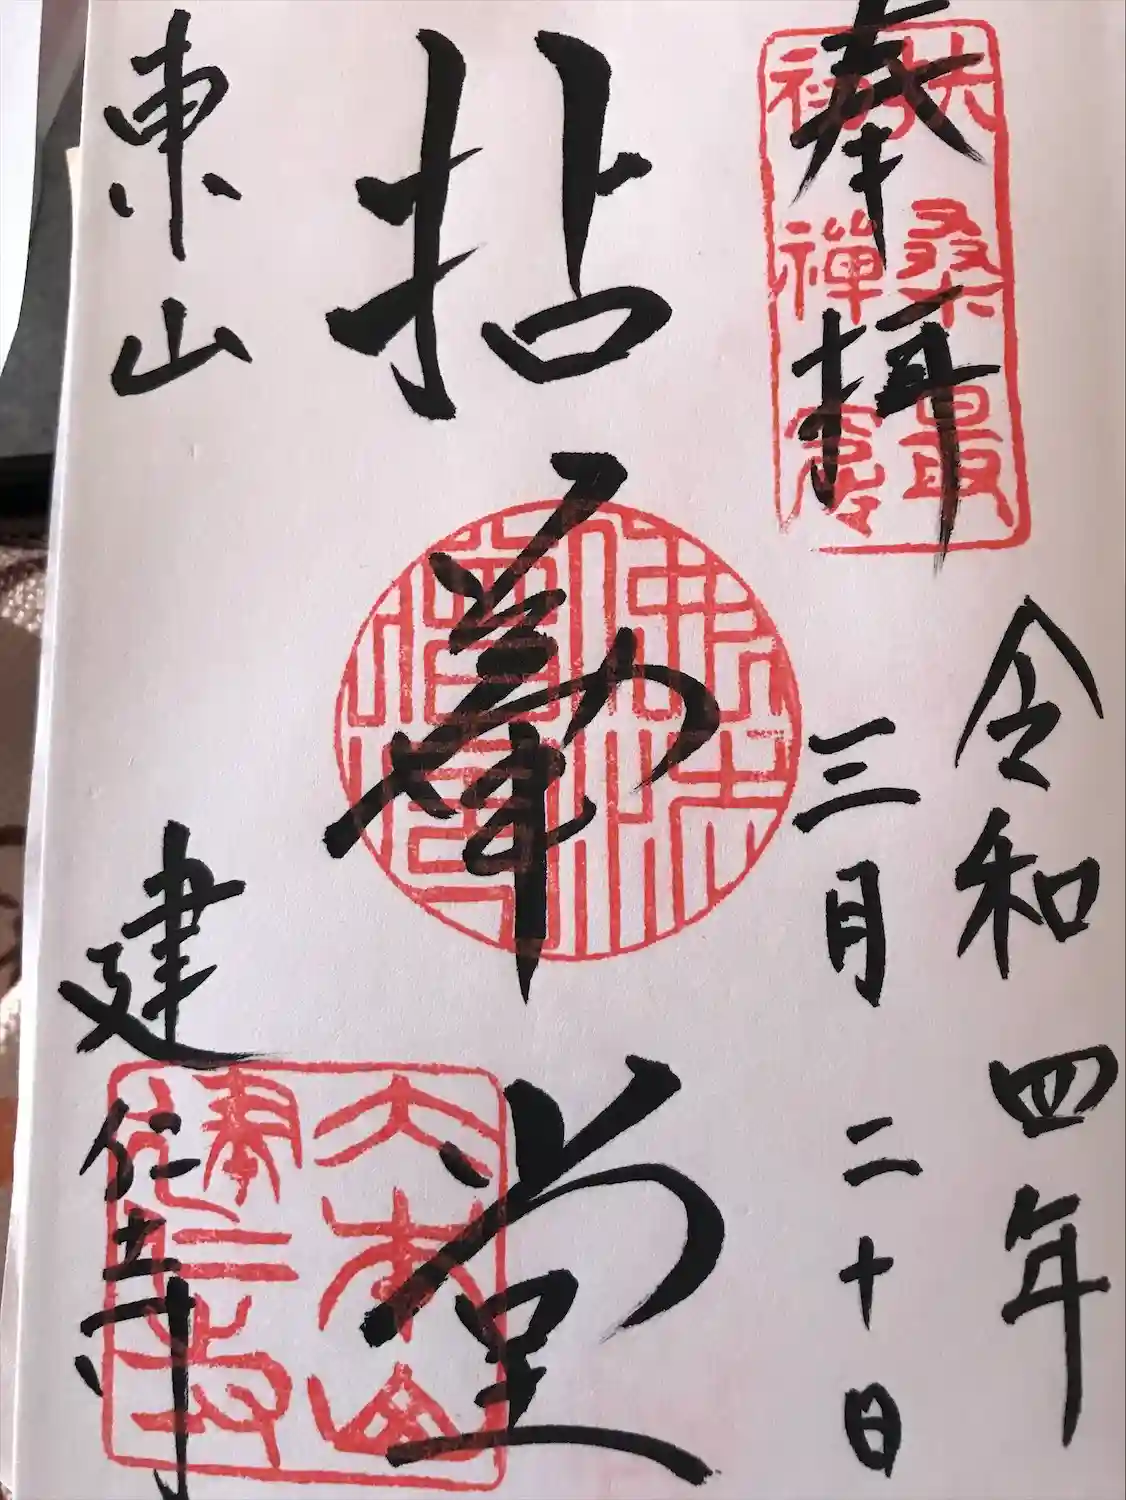 奉拝
扶桑最
初禅窟
令和四年
三月二十日
拈華堂
佛法
僧寶
東山 建仁寺
大本山
建仁寺